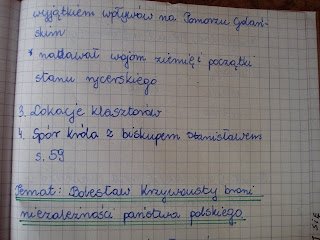 wyjątkiem wpływów na Pomorzu Gdań-
skim
* nadawał wojom ziemię i początki
stanu rycerskiego
3. Lokacje klasztorów
4. Spór króla z biskupem Stanisławem
s. 59
Temat: Bolesław Krzywousty broni
niezależności państwa polskiego.